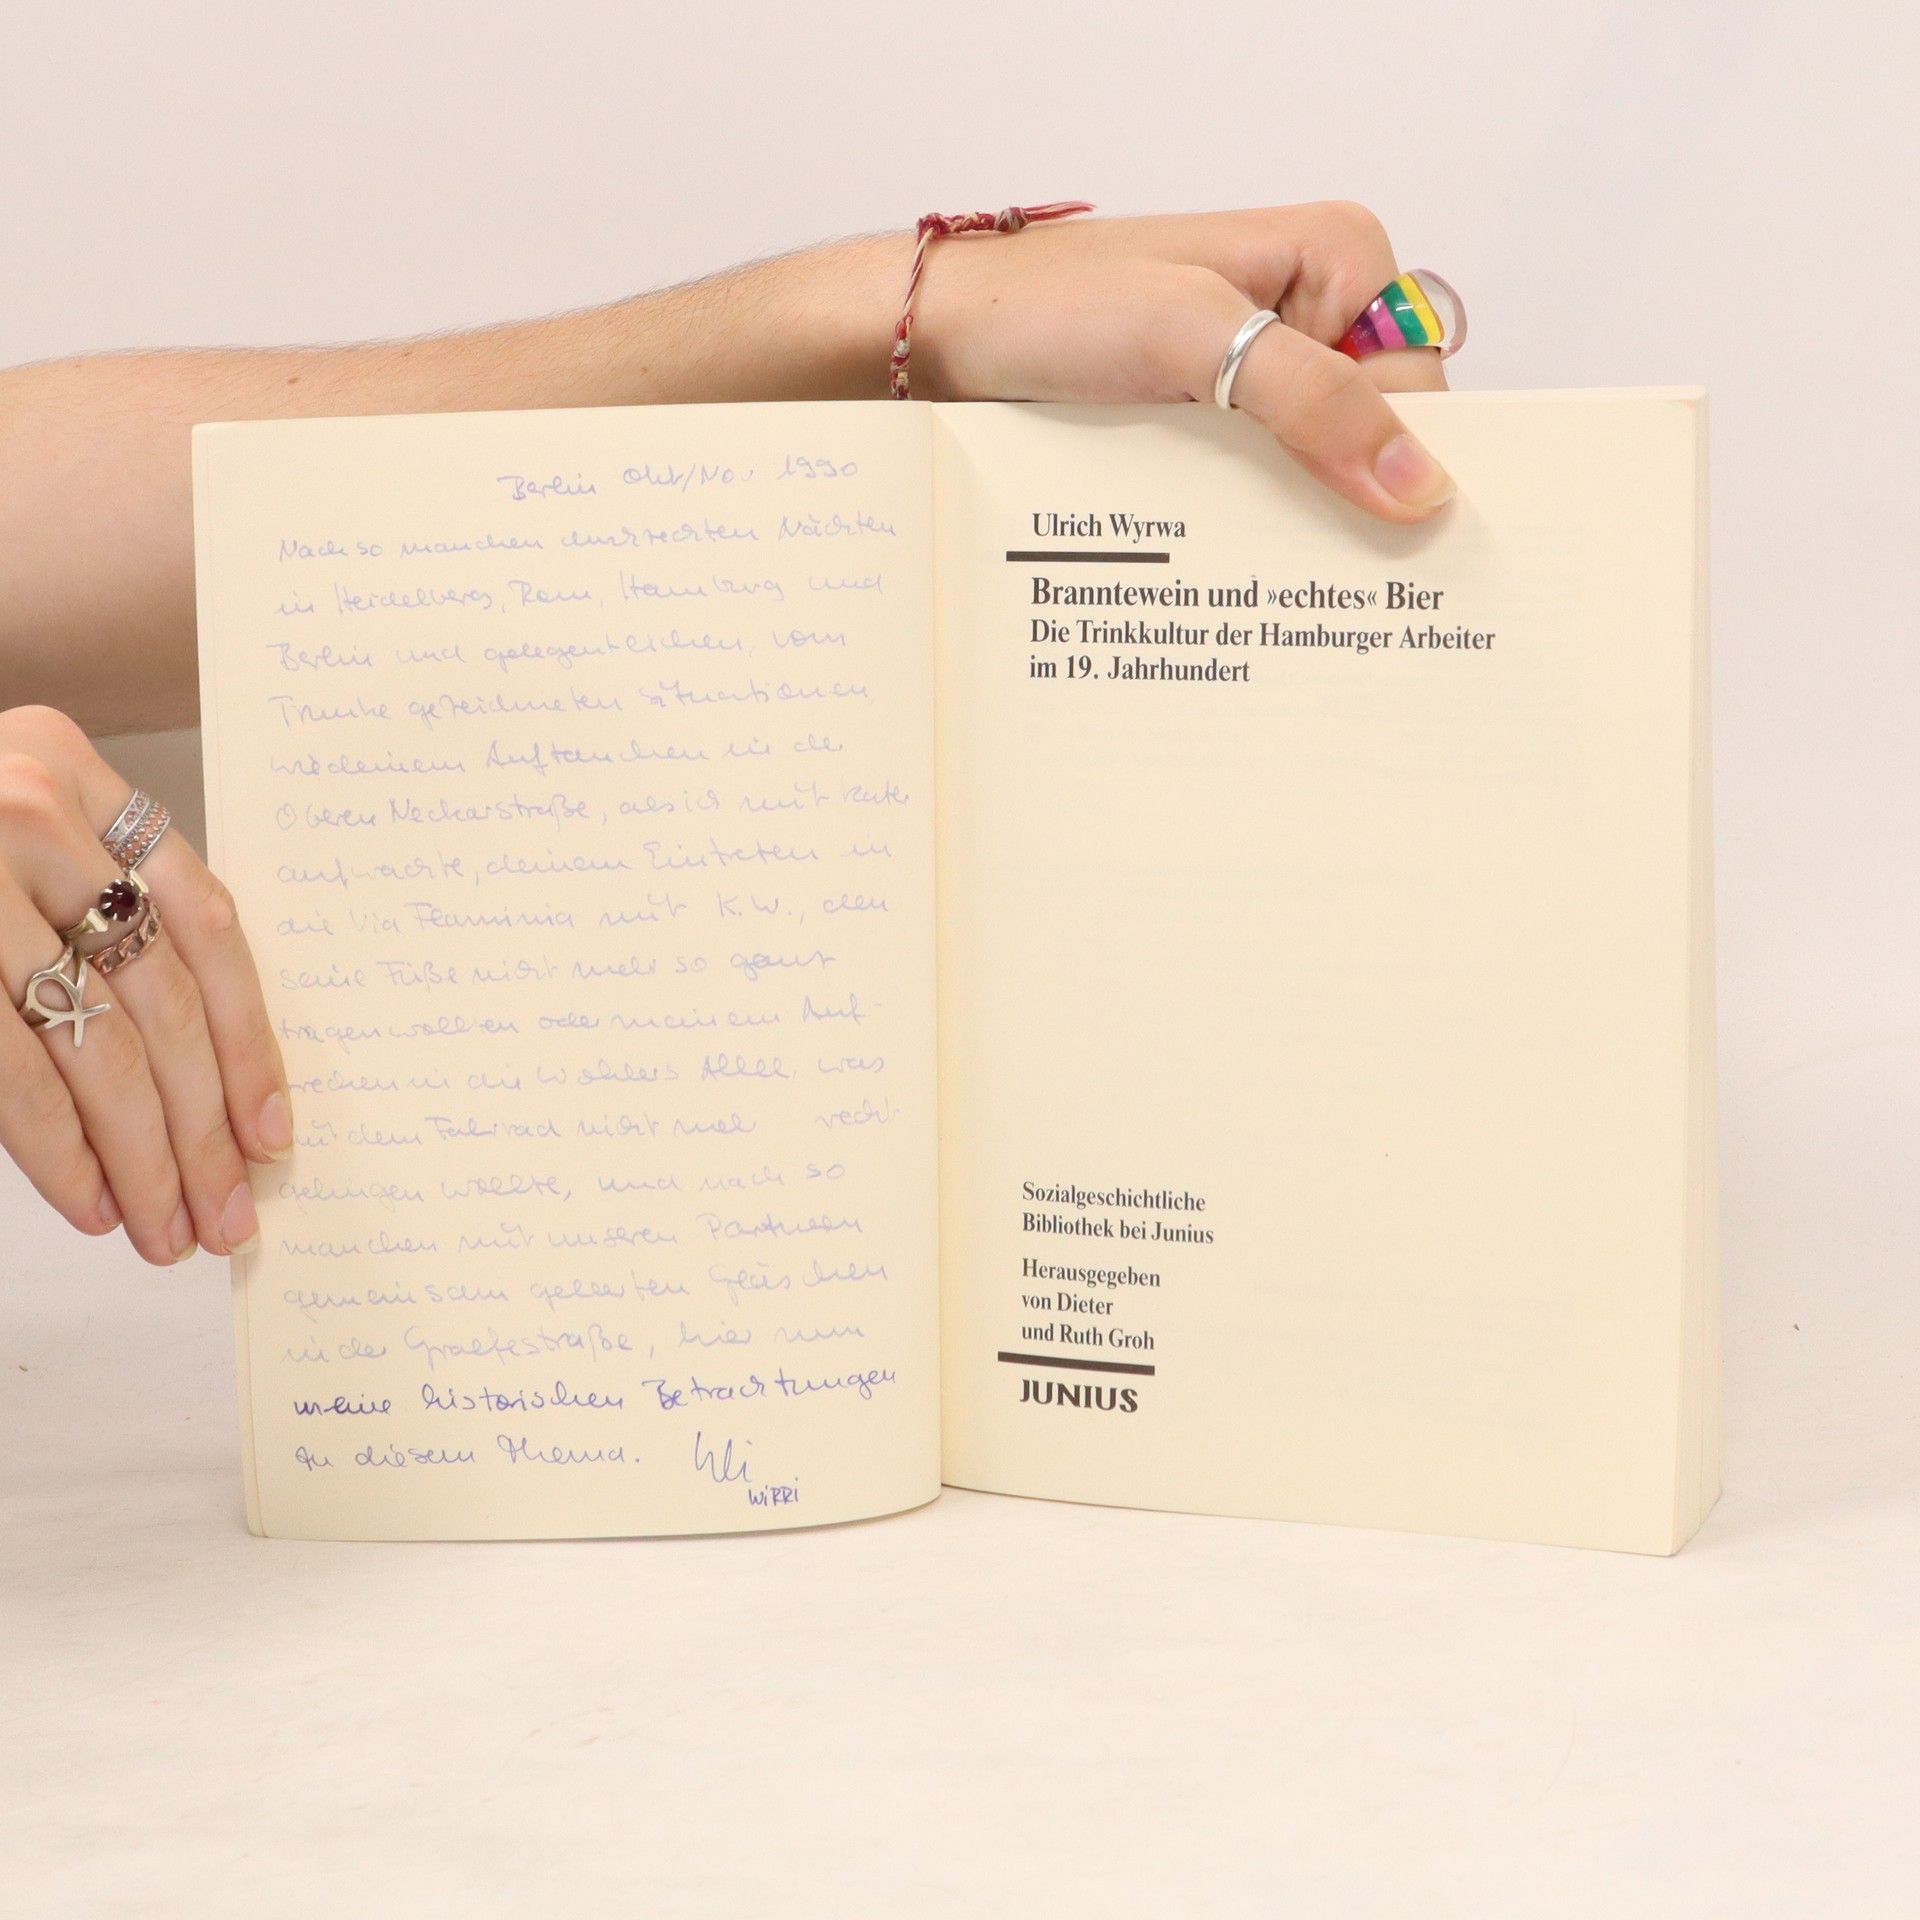 Berlin Okt/Nov 1990
Nach so manchen durchzechten Nächten
in Heidelberg, Rom, Hamburg und
Berlin und gelegentlichen, vom
Trunke gezeichneten Situationen,
wie deinem Auftauchen in der
Oberen Neckarstraße, als ich mit Kater
aufwachte, deinem Eintreten in
die Via Flaminia mit K.W., den
seine Füße nicht mehr so ganz
tragen wollten oder meinem Auf-
brechen in die Wohlers Allee, was
mit dem Fahrrad nicht mehr recht
gelingen wollte, und nach so
manchen mit unseren Partnern
gemeinsam geleerten Gläschen
in der Graefestraße, hier nun
meine historischen Betrachtungen
zu diesem Thema. Uli
WiRRi
Ulrich Wyrwa
Branntewein und »echtes« Bier
Die Trinkkultur der Hamburger Arbeiter
im 19. Jahrhundert
Sozialgeschichtliche
Bibliothek bei Junius
Herausgegeben
von Dieter
und Ruth Groh
JUNIUS